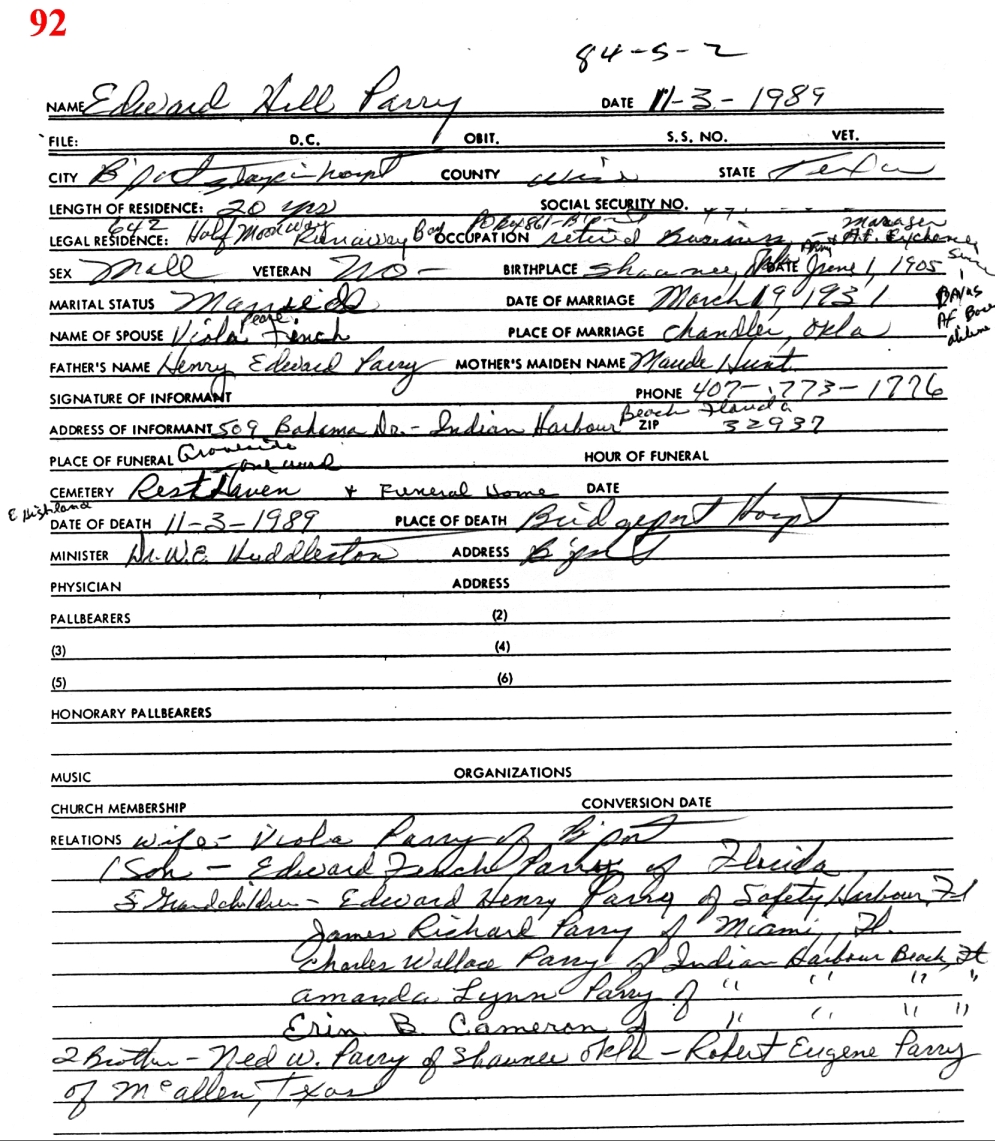 92
84-5-2
NAME Edward Hill Parry DATE 11-3-1989
FILE: D.C. OBIT. S.S. NO. VET.
CITY B'port COUNTY Wise STATE Texas
LENGTH OF RESIDENCE: 20 yrs SOCIAL SECURITY NO.
642 Manager
LEGAL RESIDENCE: Half Moon Way Runaway Bay OCCUPATION retired Business A.F. Exchange
SEX Male VETERAN No - BIRTHPLACE Shawnee, Okla DATE June 1, 1905
MARITAL STATUS Married DATE OF MARRIAGE March 19, 1931
NAME OF SPOUSE Viola Pearl French PLACE OF MARRIAGE Chandler, Okla
FATHER'S NAME Henry Edward Parry MOTHER'S MAIDEN NAME Maude Hunt
SIGNATURE OF INFORMANT PHONE 407-773-1776
ADDRESS OF INFORMANT 509 Bahama Dr.- Indian Harbour Beach Florida ZIP 32937
PLACE OF FUNERAL Graveside HOUR OF FUNERAL
CEMETERY Rest Haven + Funeral Home DATE
E Highland
DATE OF DEATH 11-3-1989 PLACE OF DEATH Bridgeport Hospt
MINISTER Dr. W.C. Huddleston ADDRESS B'port
PHYSICIAN ADDRESS
PALLBEARERS (2)
(3) (4)
(5) (6)
HONORARY PALLBEARERS
MUSIC ORGANIZATIONS
CHURCH MEMBERSHIP CONVERSION DATE
RELATIONS wife - Viola Parry of B'port
1 Son - Edward French Parry of Florida
5 Grandchildren - Edward Henry Parry of Safety Harbour, Fl
James Richard Parry of Miami, Fl.
Charles Wallace Parry of Indian Harbour Beach, Fl
Amanda Lynn Parry of " " " "
Erin B. Cameron of " " " "
2 Brother - Ned W. Parry of Shawnee Okla - Robert Eugene Parry
of McAllen, Texas